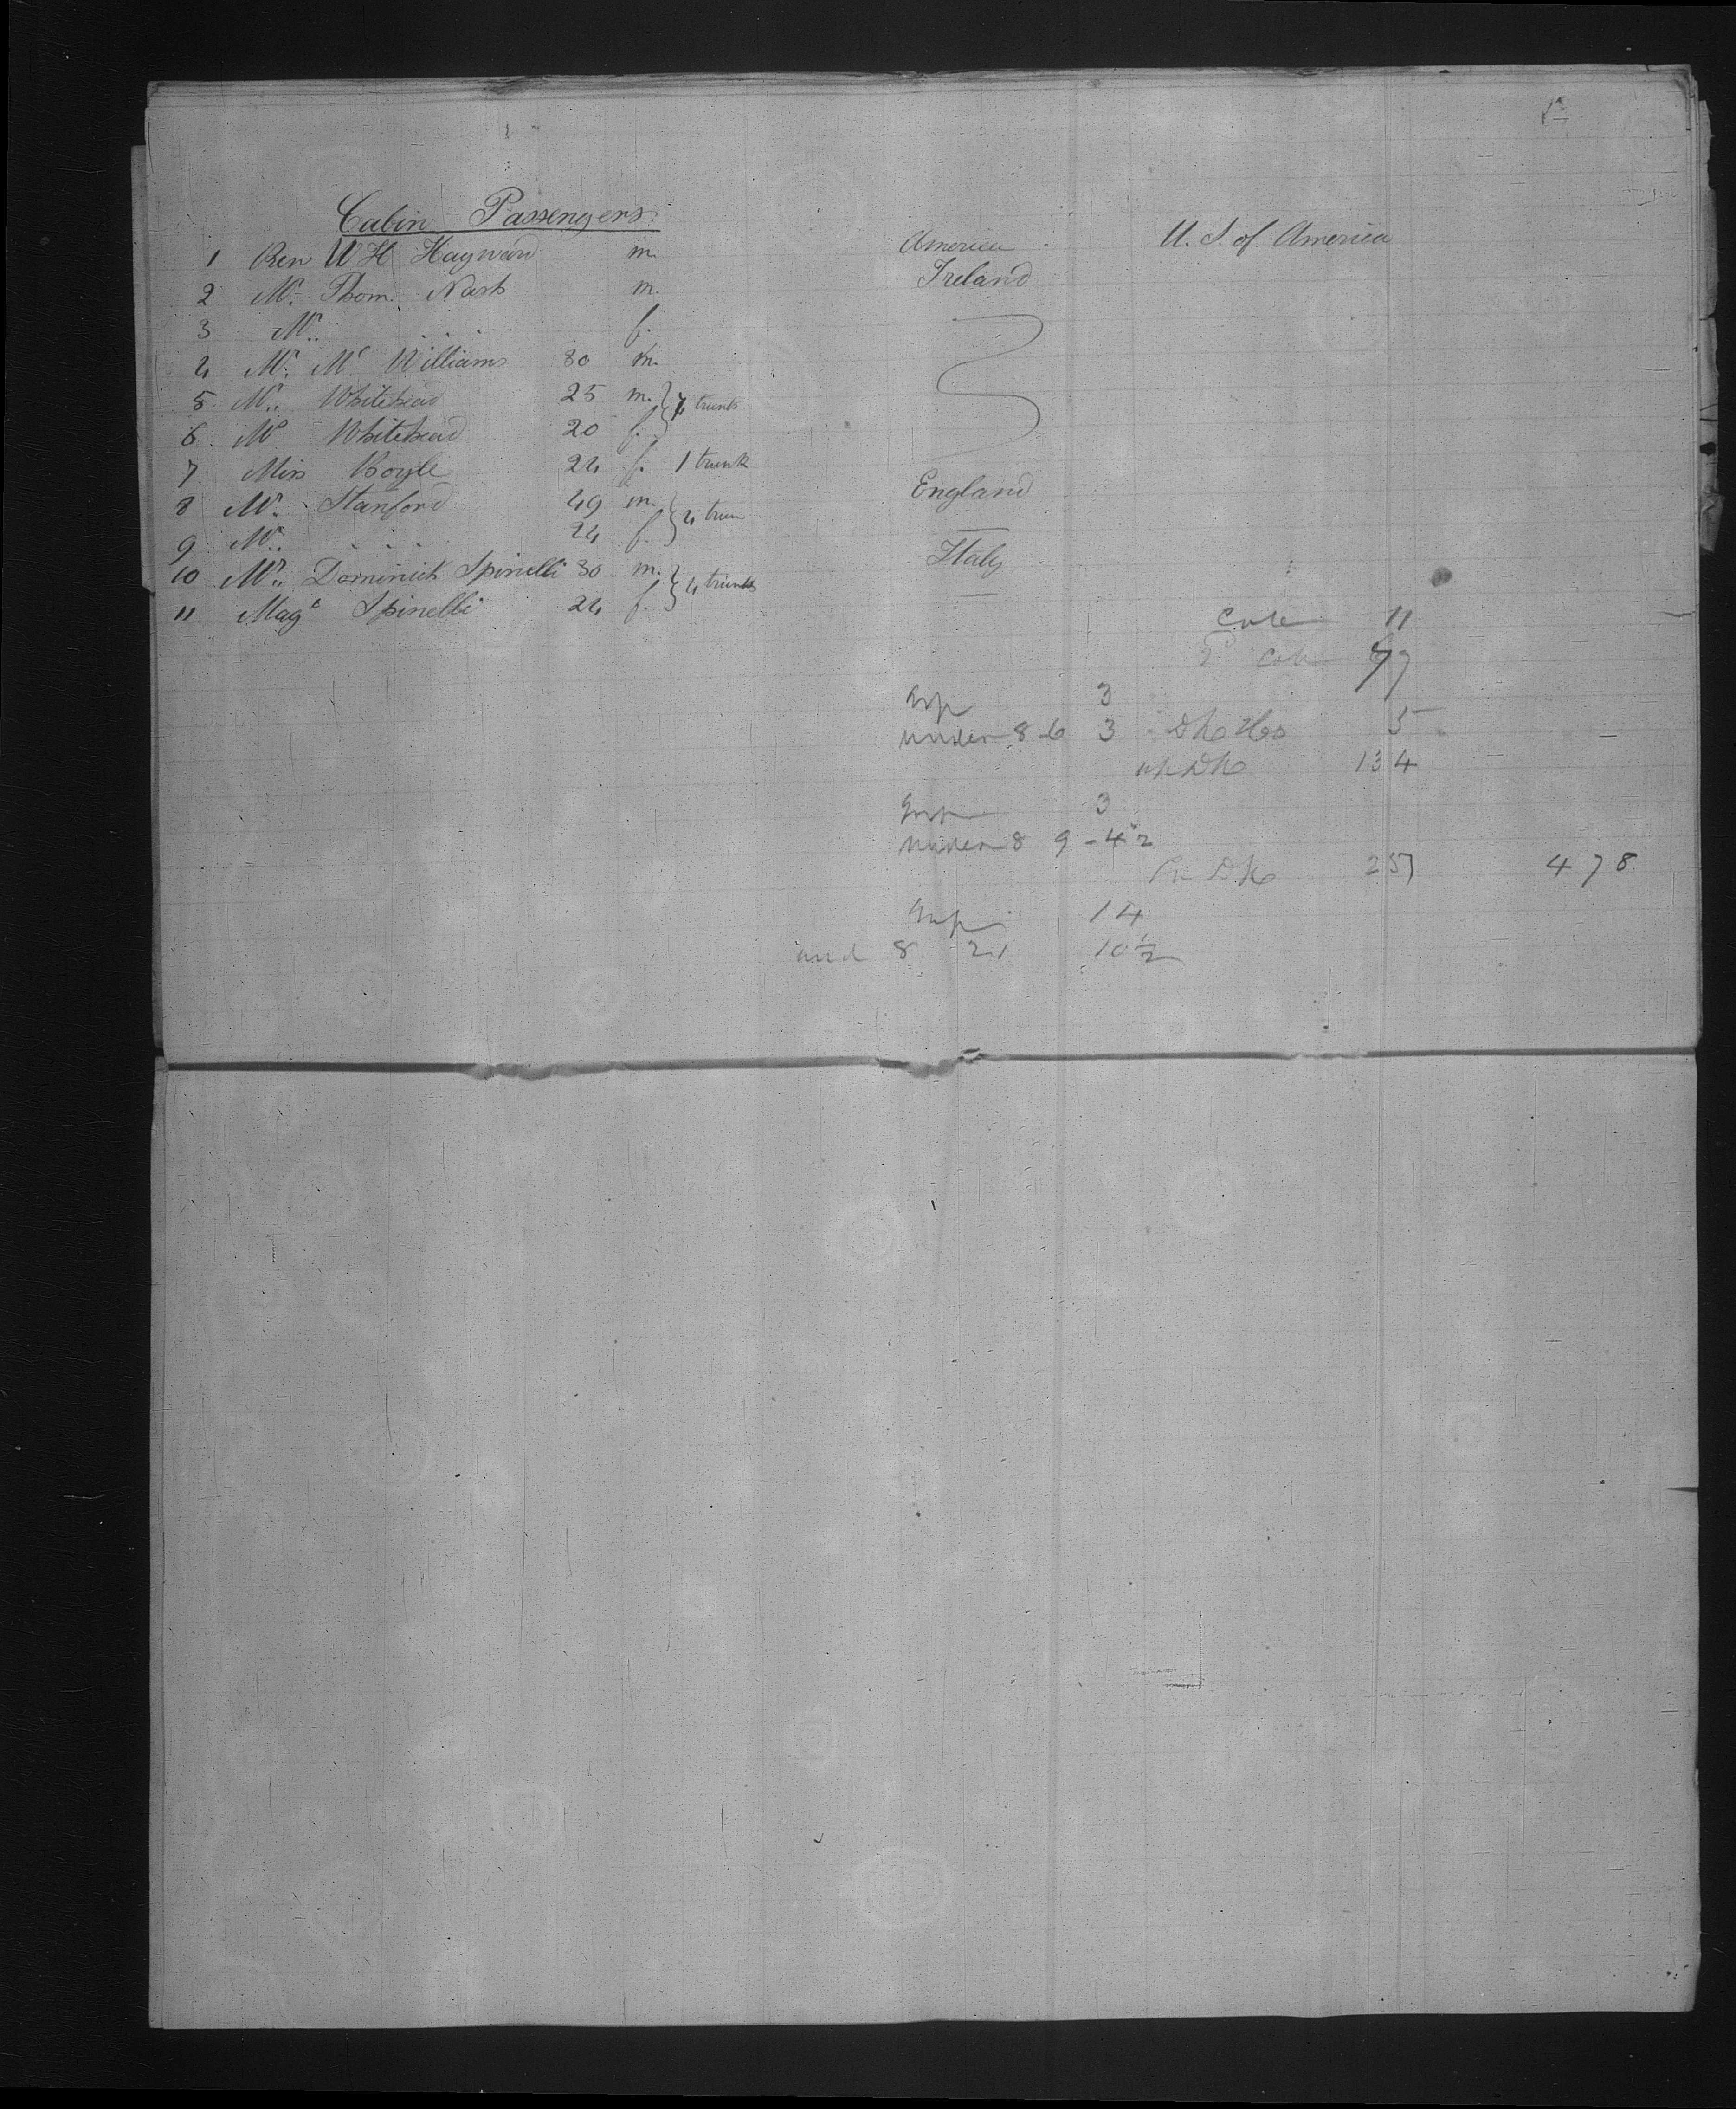 Cabin Passengers.
1 Rev W H Hayward m. America U. S. of America
2 Mr. Thom. Nash m. Ireland
3 Mrs. . . . . f.
4 Mr. Mc Williams 30 m.
5 Mr. Whitehead 25 m. } 4 trunks
6 Mrs Whitehead 20 f.
7 Miss Boyle 24 f. 1 trunk
8 Mr. Stanford 49 m. England
9 Mrs. . . . 24 f. } 4 trun
10 Mr. Dominick Spinelli 30 m. Italy
11 Magt Spinelli 24 f. } 4 trunks
11
3
under 8 6 3 5
134
3
under 8 9 - 4½
257 478
14
und 8 21 10½